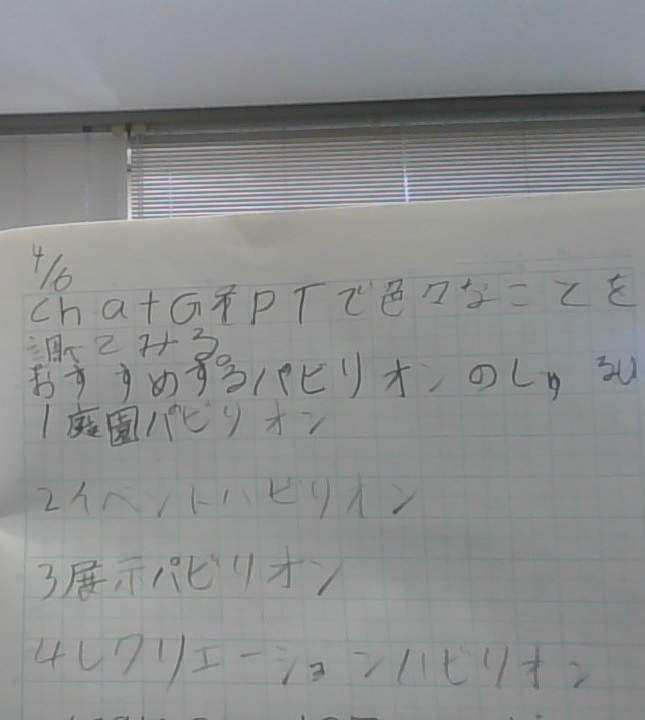 4/6
ChatGPTで色々なことを
調べてみる。
おすすめするパビリオンのしゅるい
1庭園パビリオン
2イベントハビリオン
3展示パビリオン
4レクリエーションハビリオン